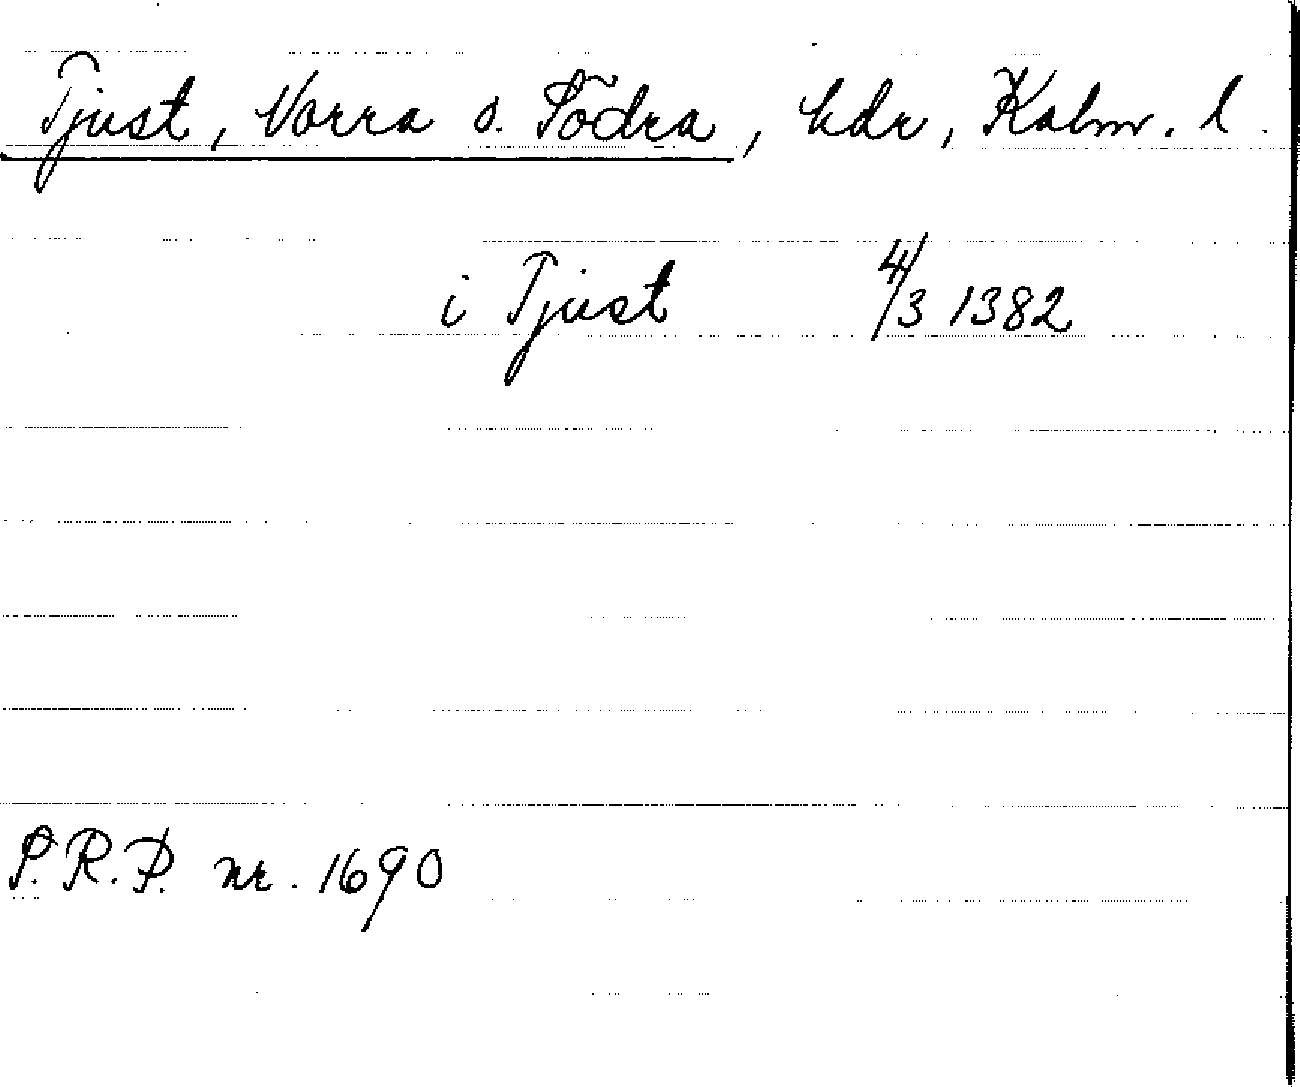 Tjust, Norra o. Södra, hdr, Kalm. l.
i Tjust 4/3 1382
S.R.P. nr. 1690